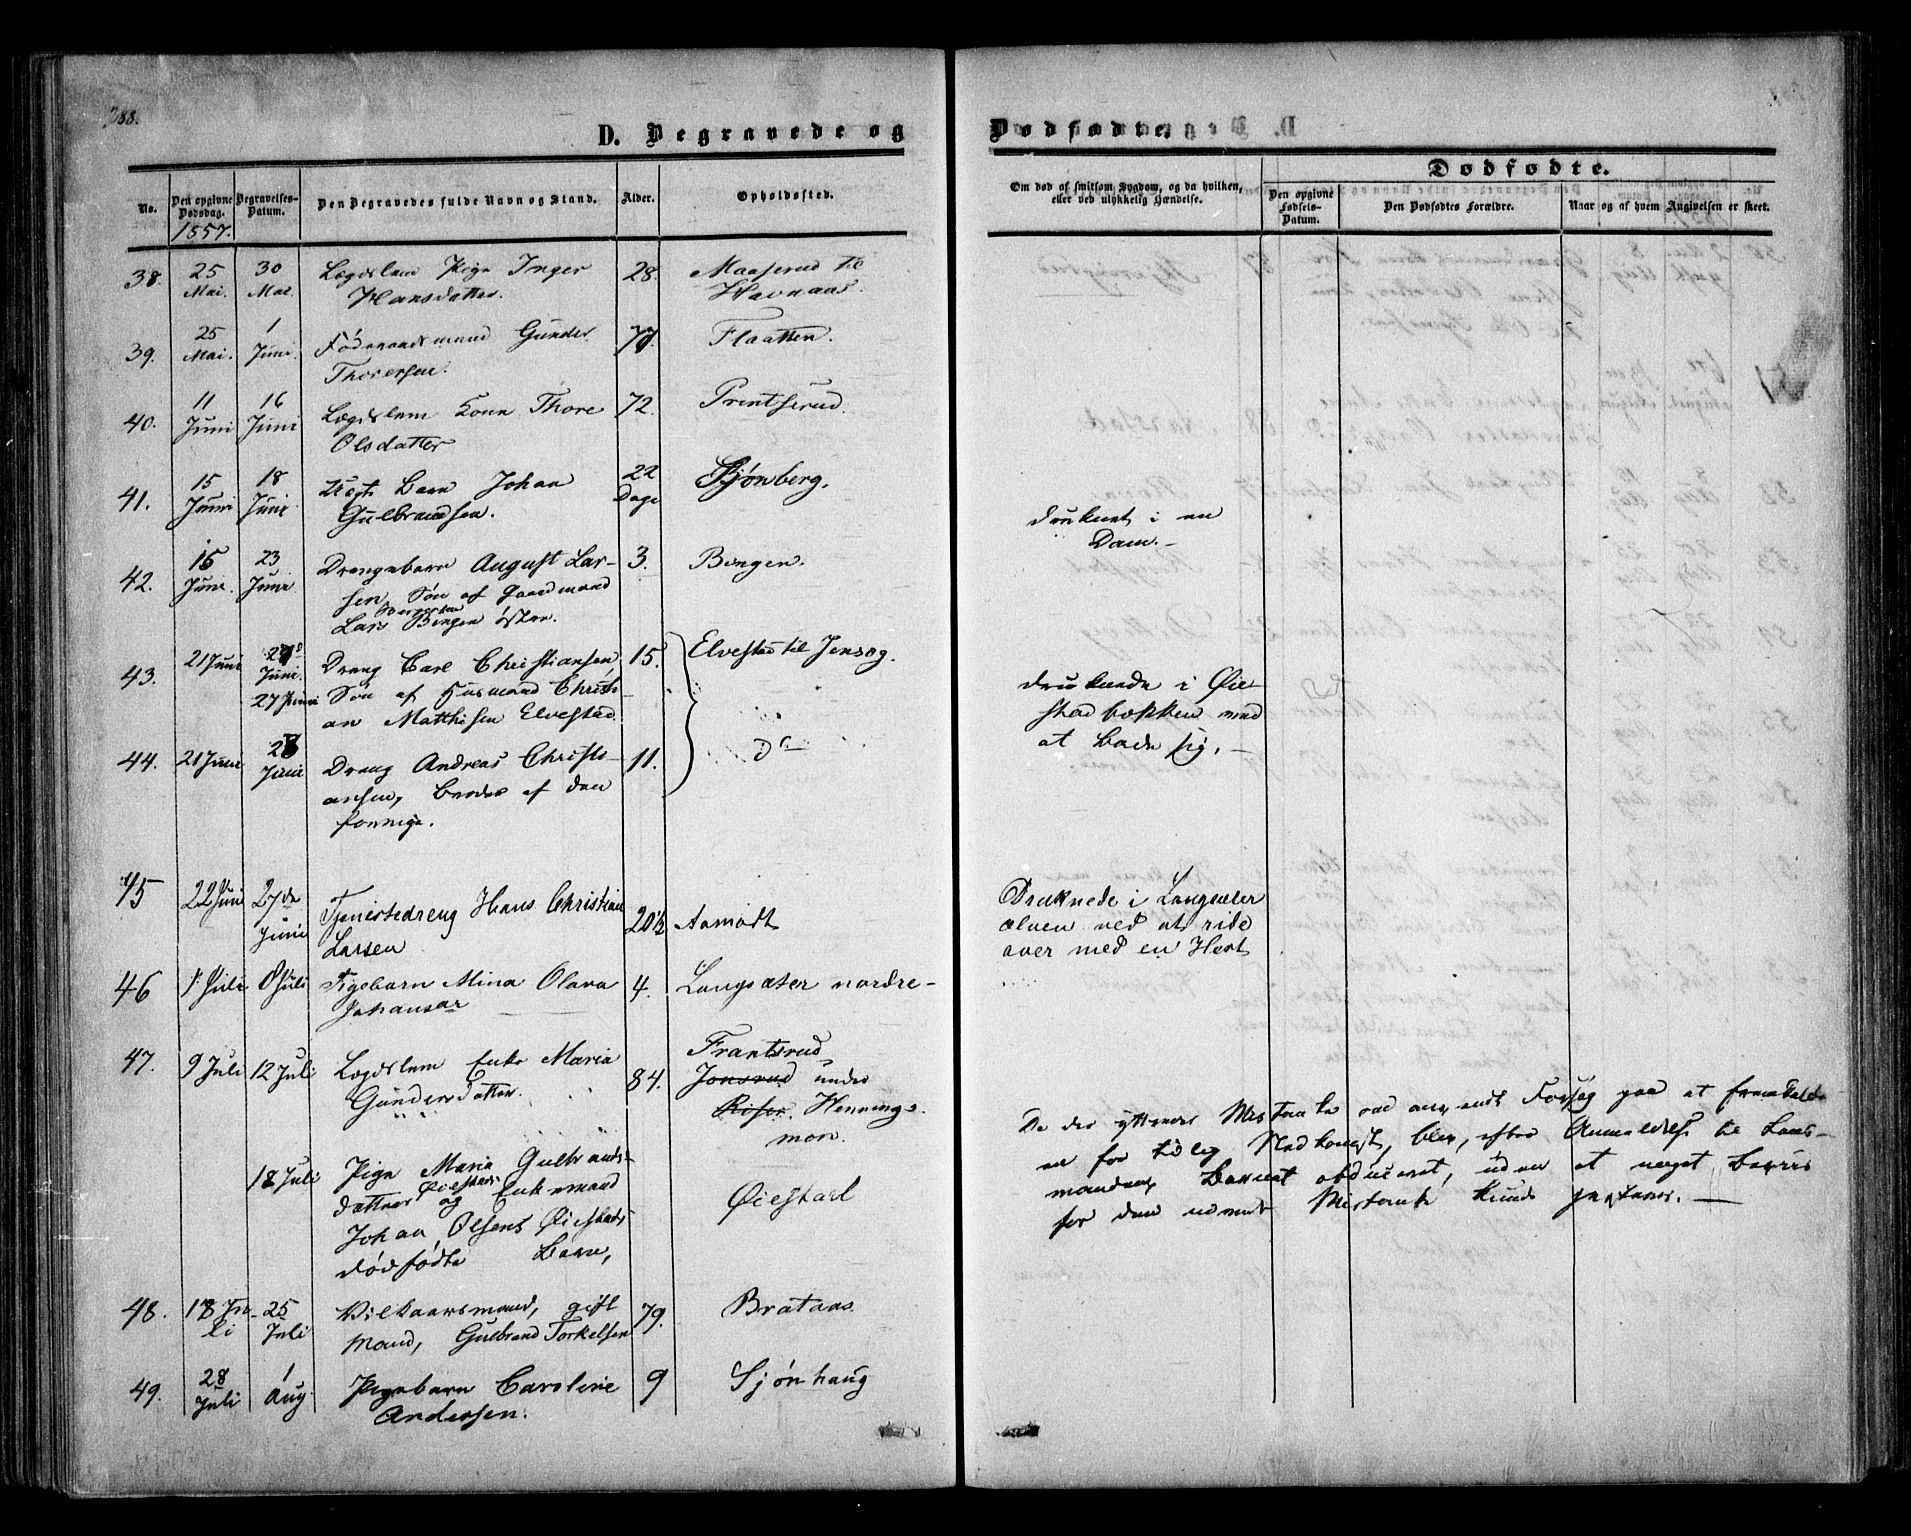 288.
D. Begravede og
Dødfødte.
No.
Den opgivne Dødsdag.
Begravelses-Datum.
Den Begravedes fulde Navn og Stand.
Alder.
Opholdssted.
Om død af smitsom Sygdom, og da hvilken,
eller ved ulykkelig Hændelse.
Dødfødte.
Den opgivne Fødsels-Datum.
Den Dødfødtes Forældre.
Naar og af hvem Angivelsen er skeet.
1857.
38. 25 Mai. 30 Mai Lægdslem Pige Inger 28. Maaserud til
Hansdatter. Havnaas.
39. 25 Mai. 1 Juni Føderaadsmand Gunder 77. Flaatten.
Thoresen.
40. 11 Juni 16 Juni Lægdslem Kone Thore 72. Prentserud.
Olsdatter
41. 15 Juni 18 Juni Uægte Barn Johan 22 Dage Sjønberg.
Gulbrandsen.
42. 16 Juni. 23 Juni Drengebarn August Lar- 3. Bingen. druknet i en
sen, Søn af Gaardmand Dam.-
Lars Bingen østre.
43. 21 Juni Juni. Dreng Carl Christiansen, 15. Elvestad til Jensøg.
27 Juni Søn af Husmand Christi- druknede i Øie-
an Matthisen Elvestad. stadbækken med
44. 21 Juni Juni Dreng Andreas Christi- 11. Do at bade sig. -
ansen, Broder af den
forrige.
45 22 Juni 27de Juni Tjenestedreng Hans Christian 20½ Aamodt Druknede i Langsæter
Larsen elven ved at ride
over med en Hest
46 1. Juli 8 Juli Pigebarn Mina Olava 4. Langsæter nordre-
Johansar
47. 9 Juli 12 Juli Lægdslem Enke Maria 84. Frantsrud
Gundersdatter. Jonsrud under
Riser. Hennings-
mon.
18 Juli Pige Maria Gulbrands-
datter Øiestad og Enkemand Øiestad
Johan Olsens Øiestads
dødfødte Barn,
Da der yttredes Mistanke om Forsøg paa at fremkalde
en for tidlig Nedkomst, blev, efter Anmeldelse til Lens-
manden, Barnet obduceret, uden at noget Beviis
for den Mistanke kunde
48. 18 Ju-li 25 Juli Vilkaarsmand, gift 79. Brataas
Mand, Gulbrand Torkelsen
49. 28 Juli 1 Aug. Pigebarn Caroline 9 Sjønhaug
Andersen.